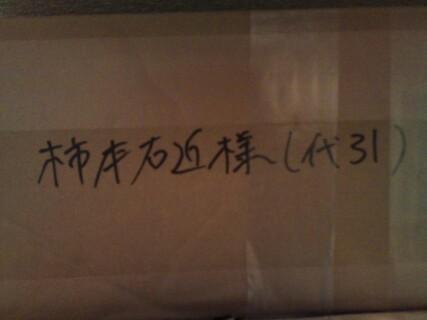 柿本右近様(代引)